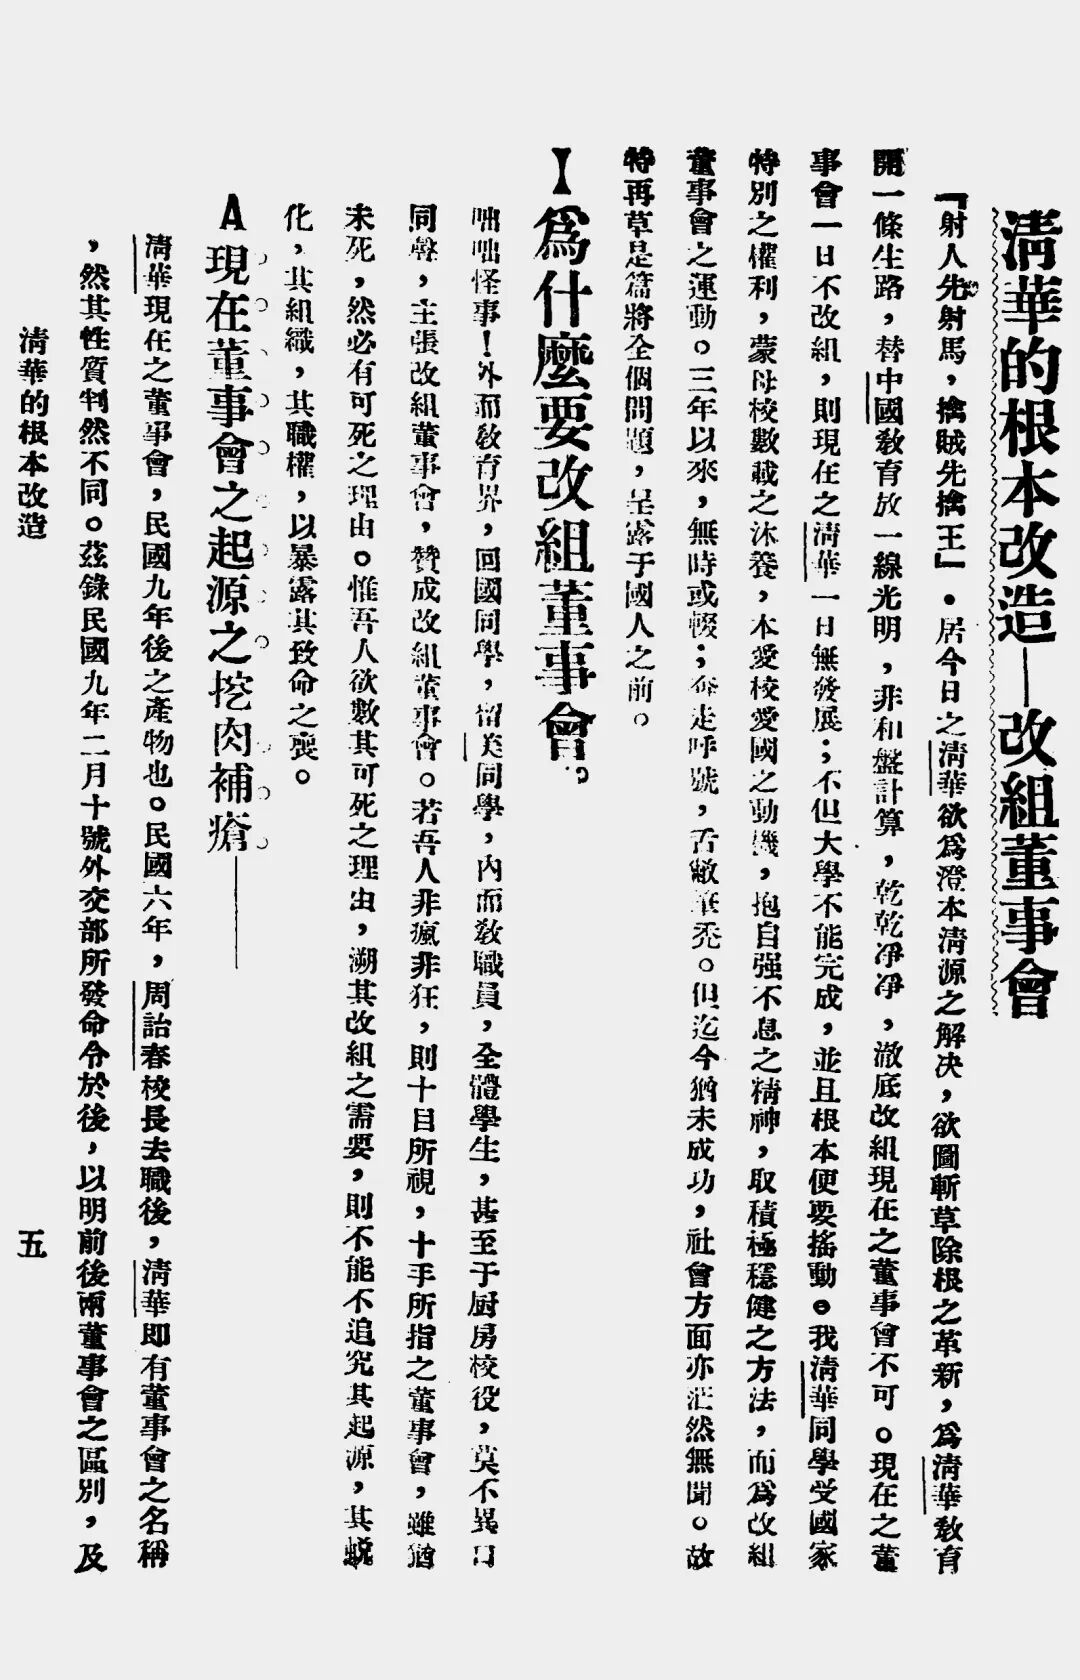 清華的根本改造——改組董事會
「射人先射馬，擒賊先擒王」。居今日之清華欲爲澄本清源之解决，欲圖斬草除根之革新，爲清華敎育
開一條生路，替中國敎育放一線光明，非和盤計算，乾乾凈凈，澈底改組現在之董事會不可。現在之董
事會一日不改組，則現在之清華一日無發展；不但大學不能完成，並且根本便要搖動。我清華同學受國家
特別之權利，蒙母校數載之沐養，本愛校愛國之動機，抱自强不息之精神，取積極穩健之方法，而爲改組
董事會之運動。三年以來，無時或輟；奔走呼號，舌敝筆禿。但迄今猶未成功，社會方面亦茫然無聞。故
特再草是篇將全個問題，呈露于國人之前。
I 爲什麼要改組董事會。
咄咄怪事！外而敎育界，回國同學，留美同學，內而敎職員，全體學生，甚至于厨房校役，莫不異口
同聲，主張改組董事會，贊成改組董事會。若吾人非瘋非狂，則十目所視，十手所指之董事會，雖猶
未死，然必有可死之理由。惟吾人欲數其可死之理由，溯其改組之需要，則不能不追究其起源，其蛻
化，其組織，其職權，以暴露其致命之喪。
A 現在董事會之起源之挖肉補瘡——
清華現在之董事會，民國九年後之產物也。民國六年，周詒春校長去職後，清華即有董事會之名稱
，然其性質判然不同。茲錄民國九年二月十號外交部所發命令於後，以明前後兩董事會之區別，及
清華的根本改造
五